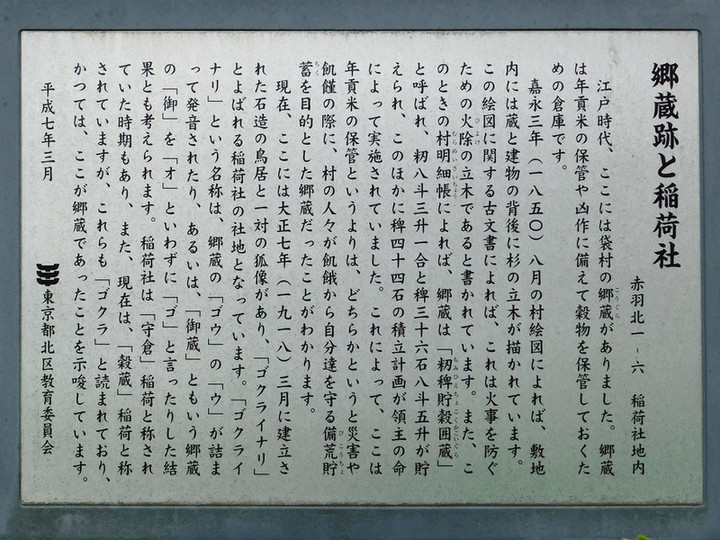 郷蔵跡と稲荷社
赤羽北一-六　稲荷社地内
江戸時代、ここには袋村の郷蔵がありました。郷蔵
は年貢米の保管や凶作に備えて穀物を保管しておくた
めの倉庫です。
嘉永三年（一八五〇）八月の村絵図によれば、敷地
内には蔵と建物の背後に杉の立木が描かれています。
この絵図に関する古文書によれば、これは火事を防ぐ
ための火除の立木であると書かれています。また、こ
のときの村明細帳によれば、郷蔵は「籾稗貯穀囲蔵」
と呼ばれ、籾八斗三升一合と稗三十六石八斗五升が貯
えられ、このほかに稗四十四石の積立計画が領主の命
によって実施されていました。これによって、ここは
年貢米の保管というよりは、どちらかというと災害や
飢饉の際に、村の人々が飢餓から自分達を守る備荒貯
蓄を目的とした郷蔵だったことがわかります。
現在、ここには大正七年（一九一八）三月に建立さ
れた石造の鳥居と一対の狐像があり、「ゴクライナリ」
とよばれる稲荷社の社地となっています。「ゴクライ
ナリ」という名称は、郷蔵の「ゴウ」の「ウ」が詰ま
って発音されたり、あるいは、「御蔵」ともいう郷蔵
の「御」を「オ」といわずに「ゴ」と言ったりした結
果とも考えられます。稲荷社は「守倉」稲荷と称され
ていた時期もあり、また、現在は、「穀蔵」稲荷と称
されていますが、これらも「ゴクラ」と読まれており、
かつては、ここが郷蔵であったことを示唆しています。
平成七年三月
東京都北区教育委員会